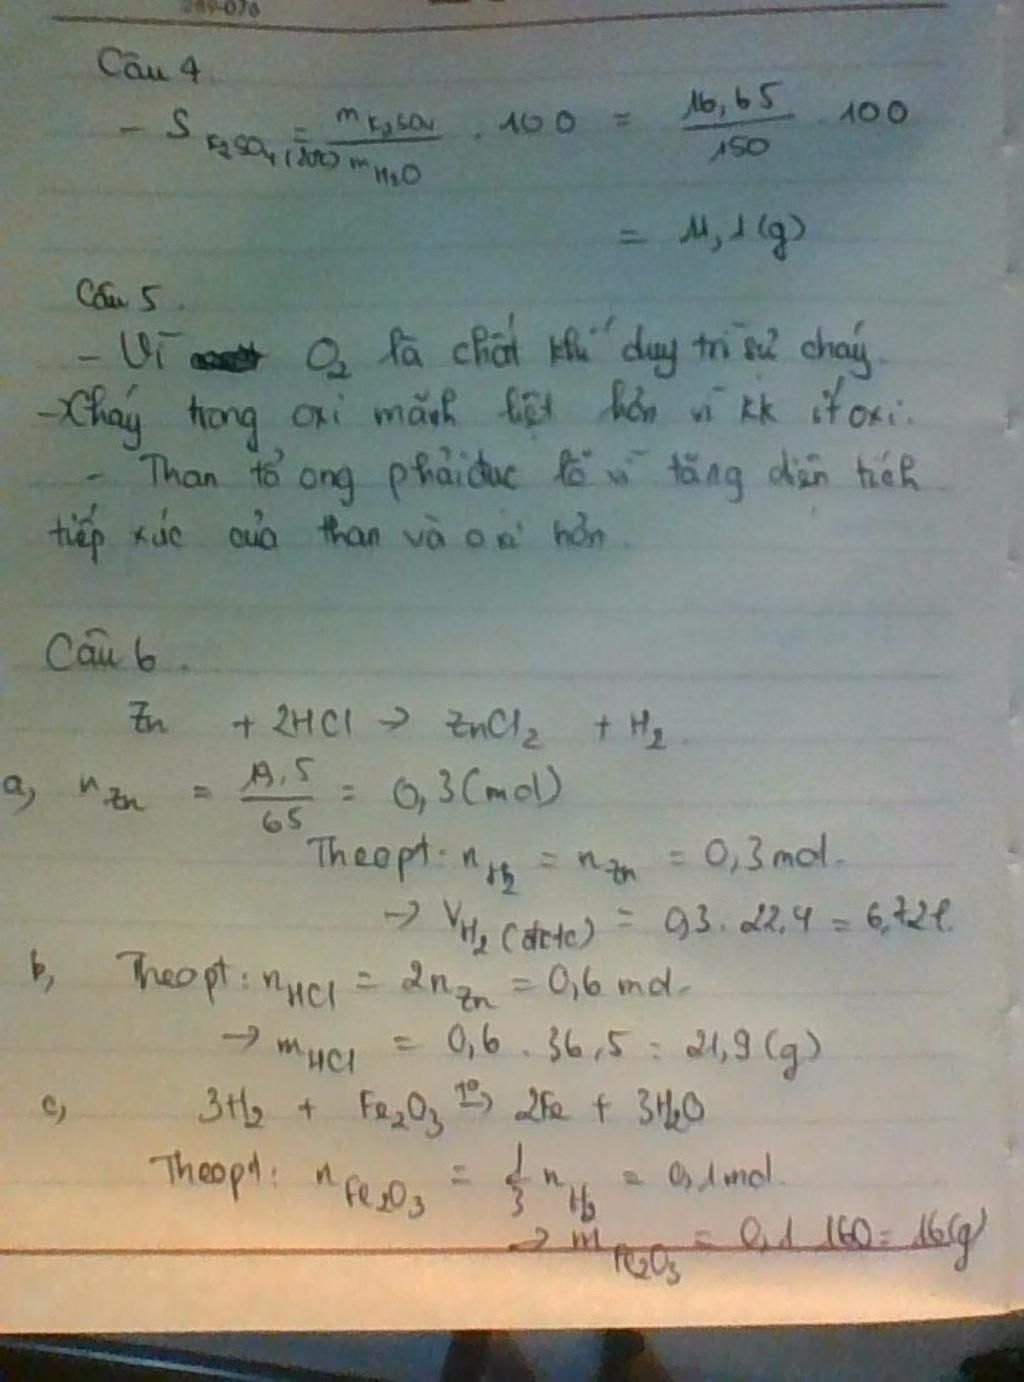 Câu 4
- S K2SO4 (20°C) = mK2SO4 / mH2O . 100 = 16,65 / 150 . 100
= 11,1 (g)
Câu 5.
- Vì O2 là chất khí duy trì sự cháy
- Cháy trong oxi mãnh liệt hơn vì kk ít oxi.
- Than tổ ong phải đục lỗ vì tăng diện tích
tiếp xúc của than và oxi hơn.
Câu 6.
Zn + 2HCl → ZnCl2 + H2.
a, nZn = 19,5 / 65 = 0,3 (mol)
Theo pt: nH2 = nZn = 0,3 mol.
→ VH2 (đktc) = 0,3 . 22,4 = 6,72 l.
b, Theo pt: nHCl = 2nZn = 0,6 mol.
→ mHCl = 0,6 . 36,5 = 21,9 (g)
c, 3H2 + Fe2O3 t°→ 2Fe + 3H2O
Theo pt: nFe2O3 = 1/3 nH2 = 0,1 mol.
→ mFe2O3 = 0,1 . 160 = 16 (g)